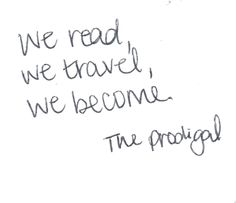 we read,
we travel,
we become.
The prodigal